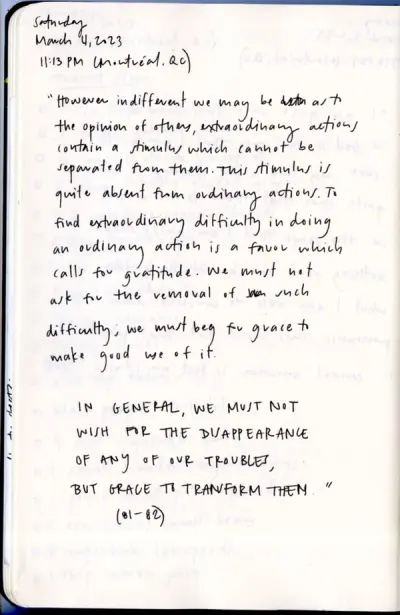 Saturday
March 4, 2023
11:13 PM (Montréal. QC)
"However indifferent we may be as to
the opinion of others, extraordinary actions
contain a stimulus which cannot be
separated from them. This stimulus is
quite absent from ordinary actions. To
find extraordinary difficulty in doing
an ordinary action is a favor which
calls for gratitude. We must not
ask for the removal of such
difficulty; we must beg for grace to
make good use of it.
IN GENERAL, WE MUST NOT
WISH FOR THE DISAPPEARANCE
OF ANY OF OUR TROUBLES,
BUT GRACE TO TRANSFORM THEM. "
(81-82)